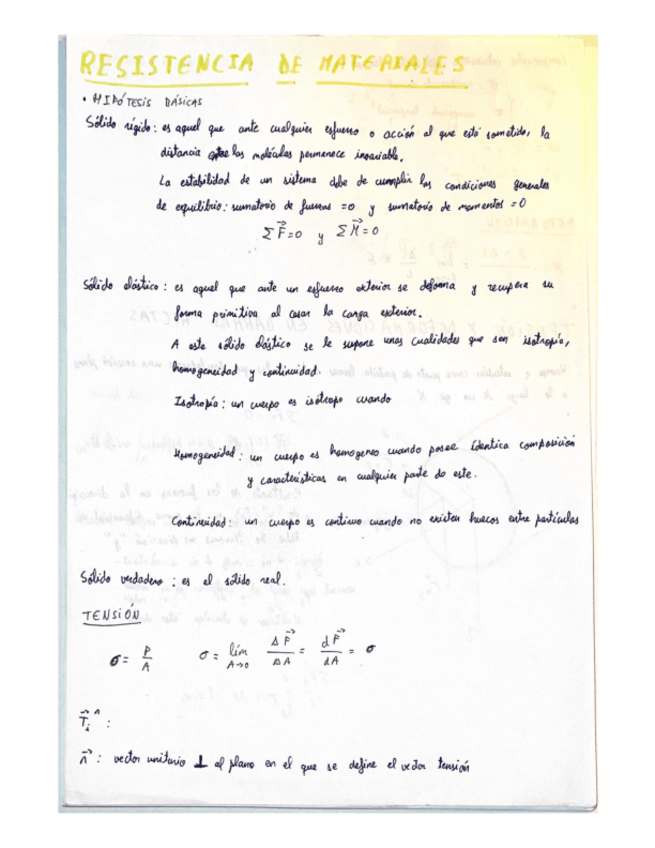 RESISTENCIA DE MATERIALES
• HIPÓTESIS BÁSICAS
Sólido rígido: es aquel que ante cualquier esfuerzo o acción al que está sometido, la
distancia entre las moléculas permanece invariable.
La estabilidad de un sistema debe de cumplir las condiciones generales
de equilibrio: sumatorio de fuerzas =0 y sumatorio de momentos =0
Σ F⃗ =0 y Σ M⃗ =0
Sólido elástico: es aquel que ante un esfuerzo exterior se deforma y recupera su
forma primitiva al cesar la carga exterior.
A este sólido elástico se le supone unas cualidades que son isotropía,
homogeneidad y continuidad.
Isotropía: un cuerpo es isótropo cuando
Homogeneidad: un cuerpo es homogeneo cuando posee identica composición
y características en cualquier parte de este.
Continuidad: un cuerpo es continuo cuando no existen huecos entre partículas
Sólido verdadero: es el sólido real.
TENSIÓN
σ = P/A σ = lím A→0 ΔF⃗/ΔA = dF⃗/dA = σ
n⃗ : vector unitario ⊥ al plano en el que se define el vector tensión